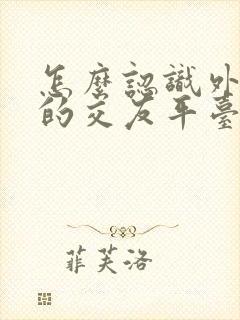 怎麼認識外
的交友平臺
菲芙洛